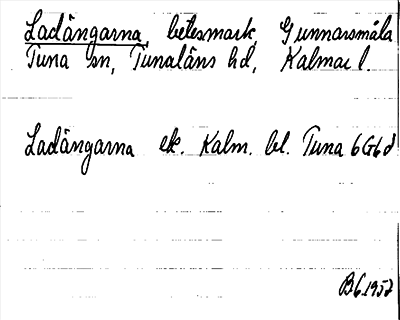 Ladängarna, betesmark, Gunnarsmåla
Tuna sn, Tunaläns hd, Kalmar l.
Ladängarna ek. Kalm. bl. Tuna 6G6d
1952